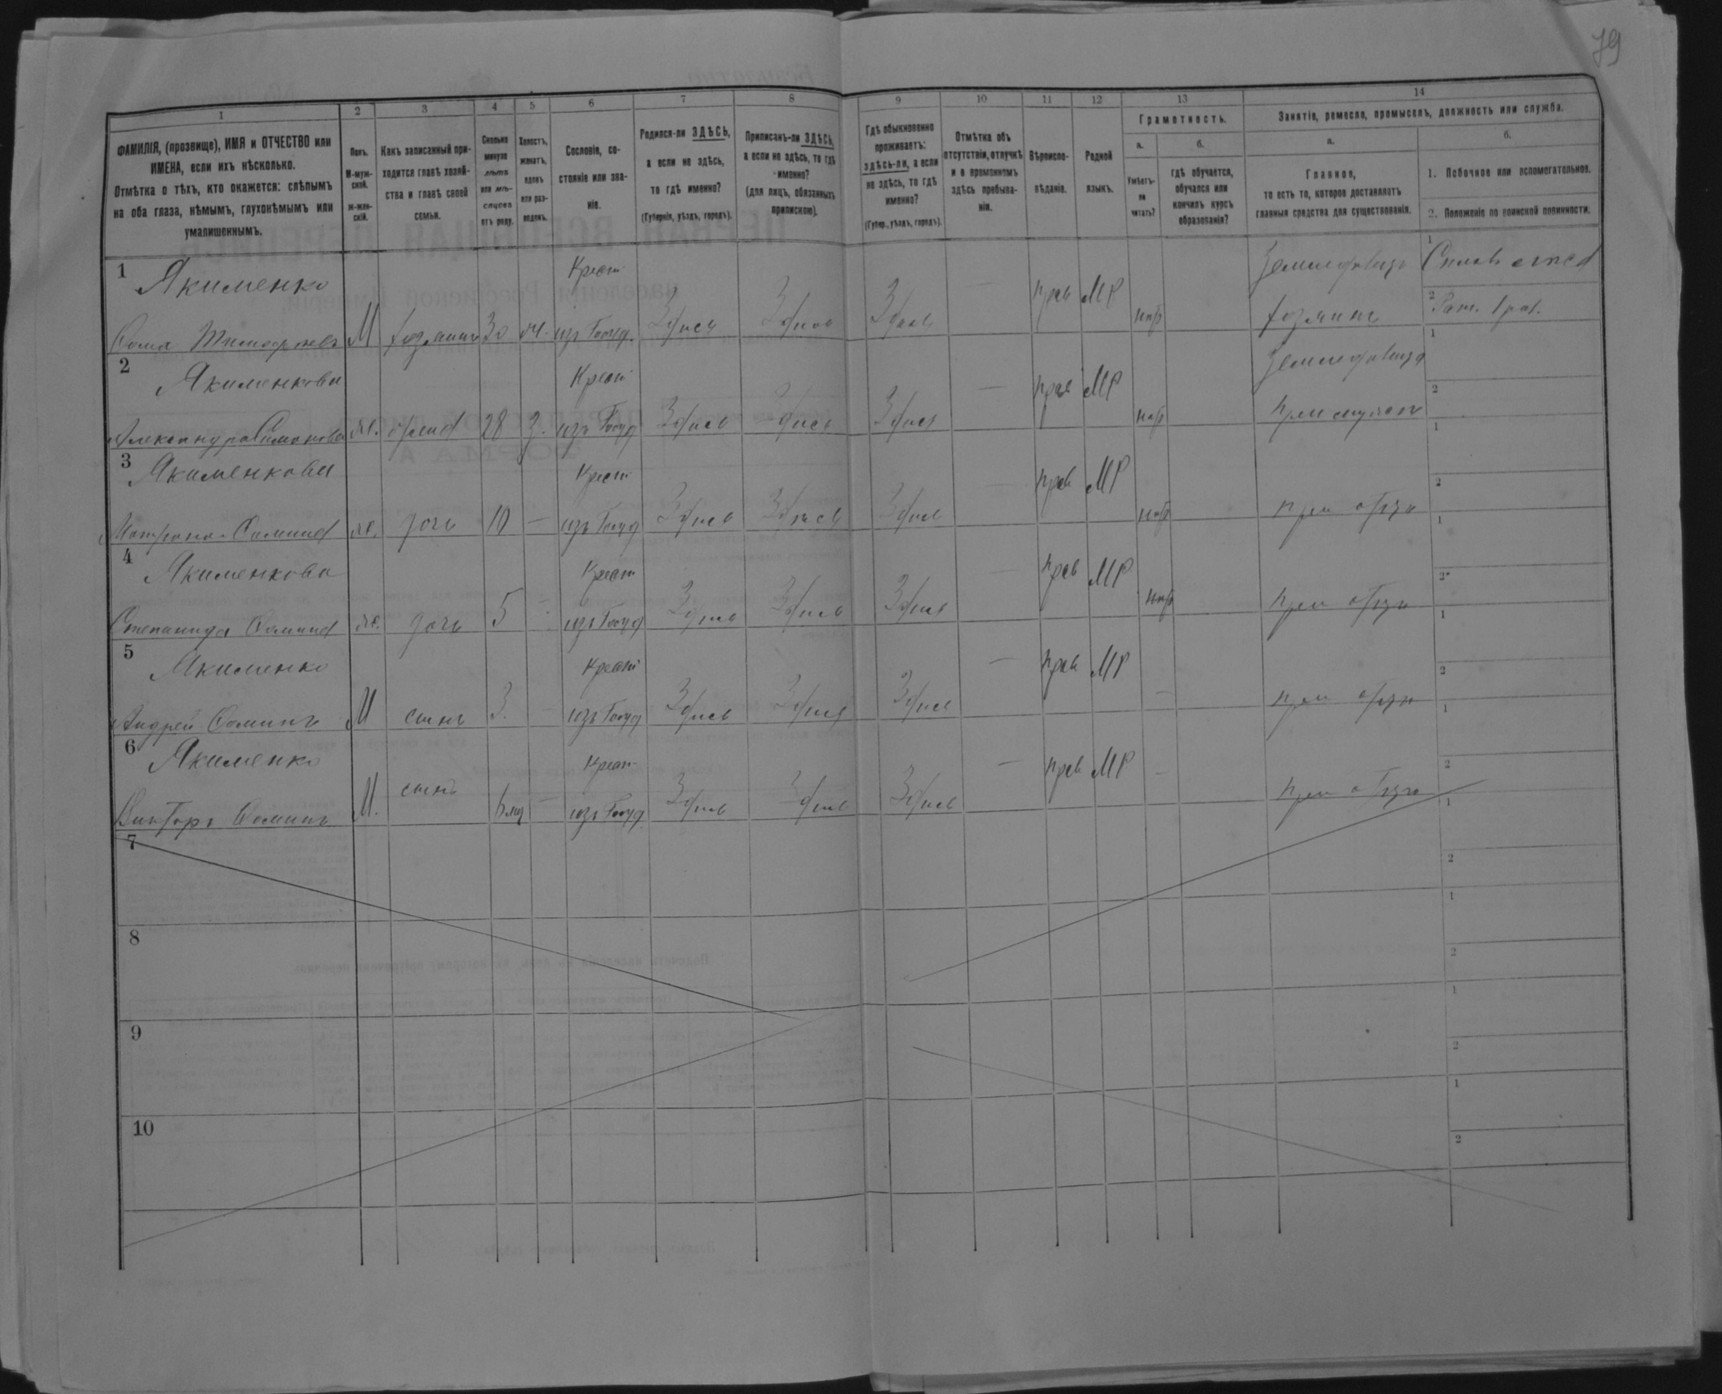 79
1 2 3 4 5 6 7 8 9 10 11 12 13 14
ФАМИЛІЯ, (прозвище), ИМЯ и ОТЧЕСТВО или
ИМЕНА, если ихъ нѣсколько.
Отмѣтка о тѣхъ, кто окажется: слѣпымъ
на оба глаза, нѣмымъ, глухонѣмымъ или
умалишоннымъ.
Полъ.
М-муж-
ской.
ж-жен-
скій.
Какъ записанный при-
ходится главѣ хозяй-
ства и главѣ своей
семьи.
Сколько
минуло
лѣтъ
или мѣ-
сяцевъ
отъ роду.
Холостъ,
женатъ,
вдовъ
или раз-
веденъ.
Сословіе, со-
стояніе или зва-
ніе.
Родился-ли ЗДѢСЬ,
а если не здѣсь,
то гдѣ именно?
(Губернія, уѣздъ, городъ).
Приписанъ-ли ЗДѢСЬ,
а если не здѣсь, то гдѣ
именно?
(для лицъ, обязанныхъ
припискою).
Гдѣ обыкновенно
проживаетъ:
здѣсь-ли, а если
не здѣсь, то гдѣ
именно?
(Губер., уѣздъ, городъ).
Отмѣтка объ
отсутствіи, отлучкѣ
и о временномъ
здѣсь пребыва-
ніи.
Вѣроиспо-
вѣданіе.
Родной
языкъ.
Грамотность.
а.
Умѣетъ-
ли
читать?
б.
гдѣ обучается,
обучался или
кончилъ курсъ
образованія?
Занятіе, ремесло, промыселъ, должность или служба.
а.
Главное,
то есть то, которое доставляетъ
главныя средства для существованія.
б.
1. Побочное или вспомогательное.
2. Положеніе по воинской повинности.
1 Якименко Крест. прав МР Земледѣлецъ 1
Фома Тимофеевъ М хозяинъ 30 изъ Госуд. Здѣсь Здѣсь Здѣсь — хозяинъ 2
2 Якименкова Крест. прав МР 1
Александра Симонова ж. жена 28 З. изъ Госуд Здѣсь Здѣсь Здѣсь — 2
3 Якименкова Крест прав МР 1
Матрона Фомина ж. дочь 10 — изъ Госуд Здѣсь Здѣсь Здѣсь — при отцѣ 2
4 Якименкова Крест прав МР 1
Степанида Фомина ж. дочь 5 — изъ Госуд Здѣсь Здѣсь Здѣсь — при отцѣ 2
5 Якименко Крест прав МР 1
Андрей Фоминъ М сынъ 3. — изъ Госуд Здѣсь Здѣсь Здѣсь — — при отцѣ 2
6 Якименко Крест прав МР 1
Викторъ Фоминъ М. сынъ 6 мц — изъ Госуд Здѣсь Здѣсь Здѣсь — — при отцѣ 2
7 1
2
8 1
2
9 1
2
10 1
2